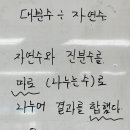 대분수 ÷ 자연수
자연수와 진분수를
따로 (나누는수)로
나누어 결과를 합했다.